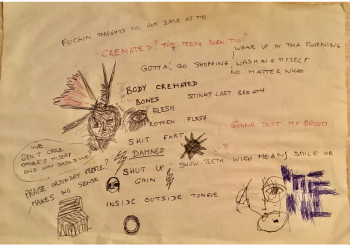 FUCKIN THOUGHTS YOU GOT SAME AS ME
CREMATED? THE TEETH BURN TOO?
WAKE UP IN THA MORNING
GOTTA GO SHOPPING WASHING MYSELF
NO MATTER WHAT
BODY CREMATED
BONES STINKY LAST BREATH
FLESH
ROTTEN FLESH
SHIT FART
DAMNED
SHOW TEETH WICH MEANS SMILE OR
WE
DON'T CARE
OTHER'S MISERY
AND WHY SHOULD WE
SHUT UP
PRAISE ORDINARY PEOPLE?
MAKES NO SENSE
GAIN
INSIDE OUTSIDE TONGUE